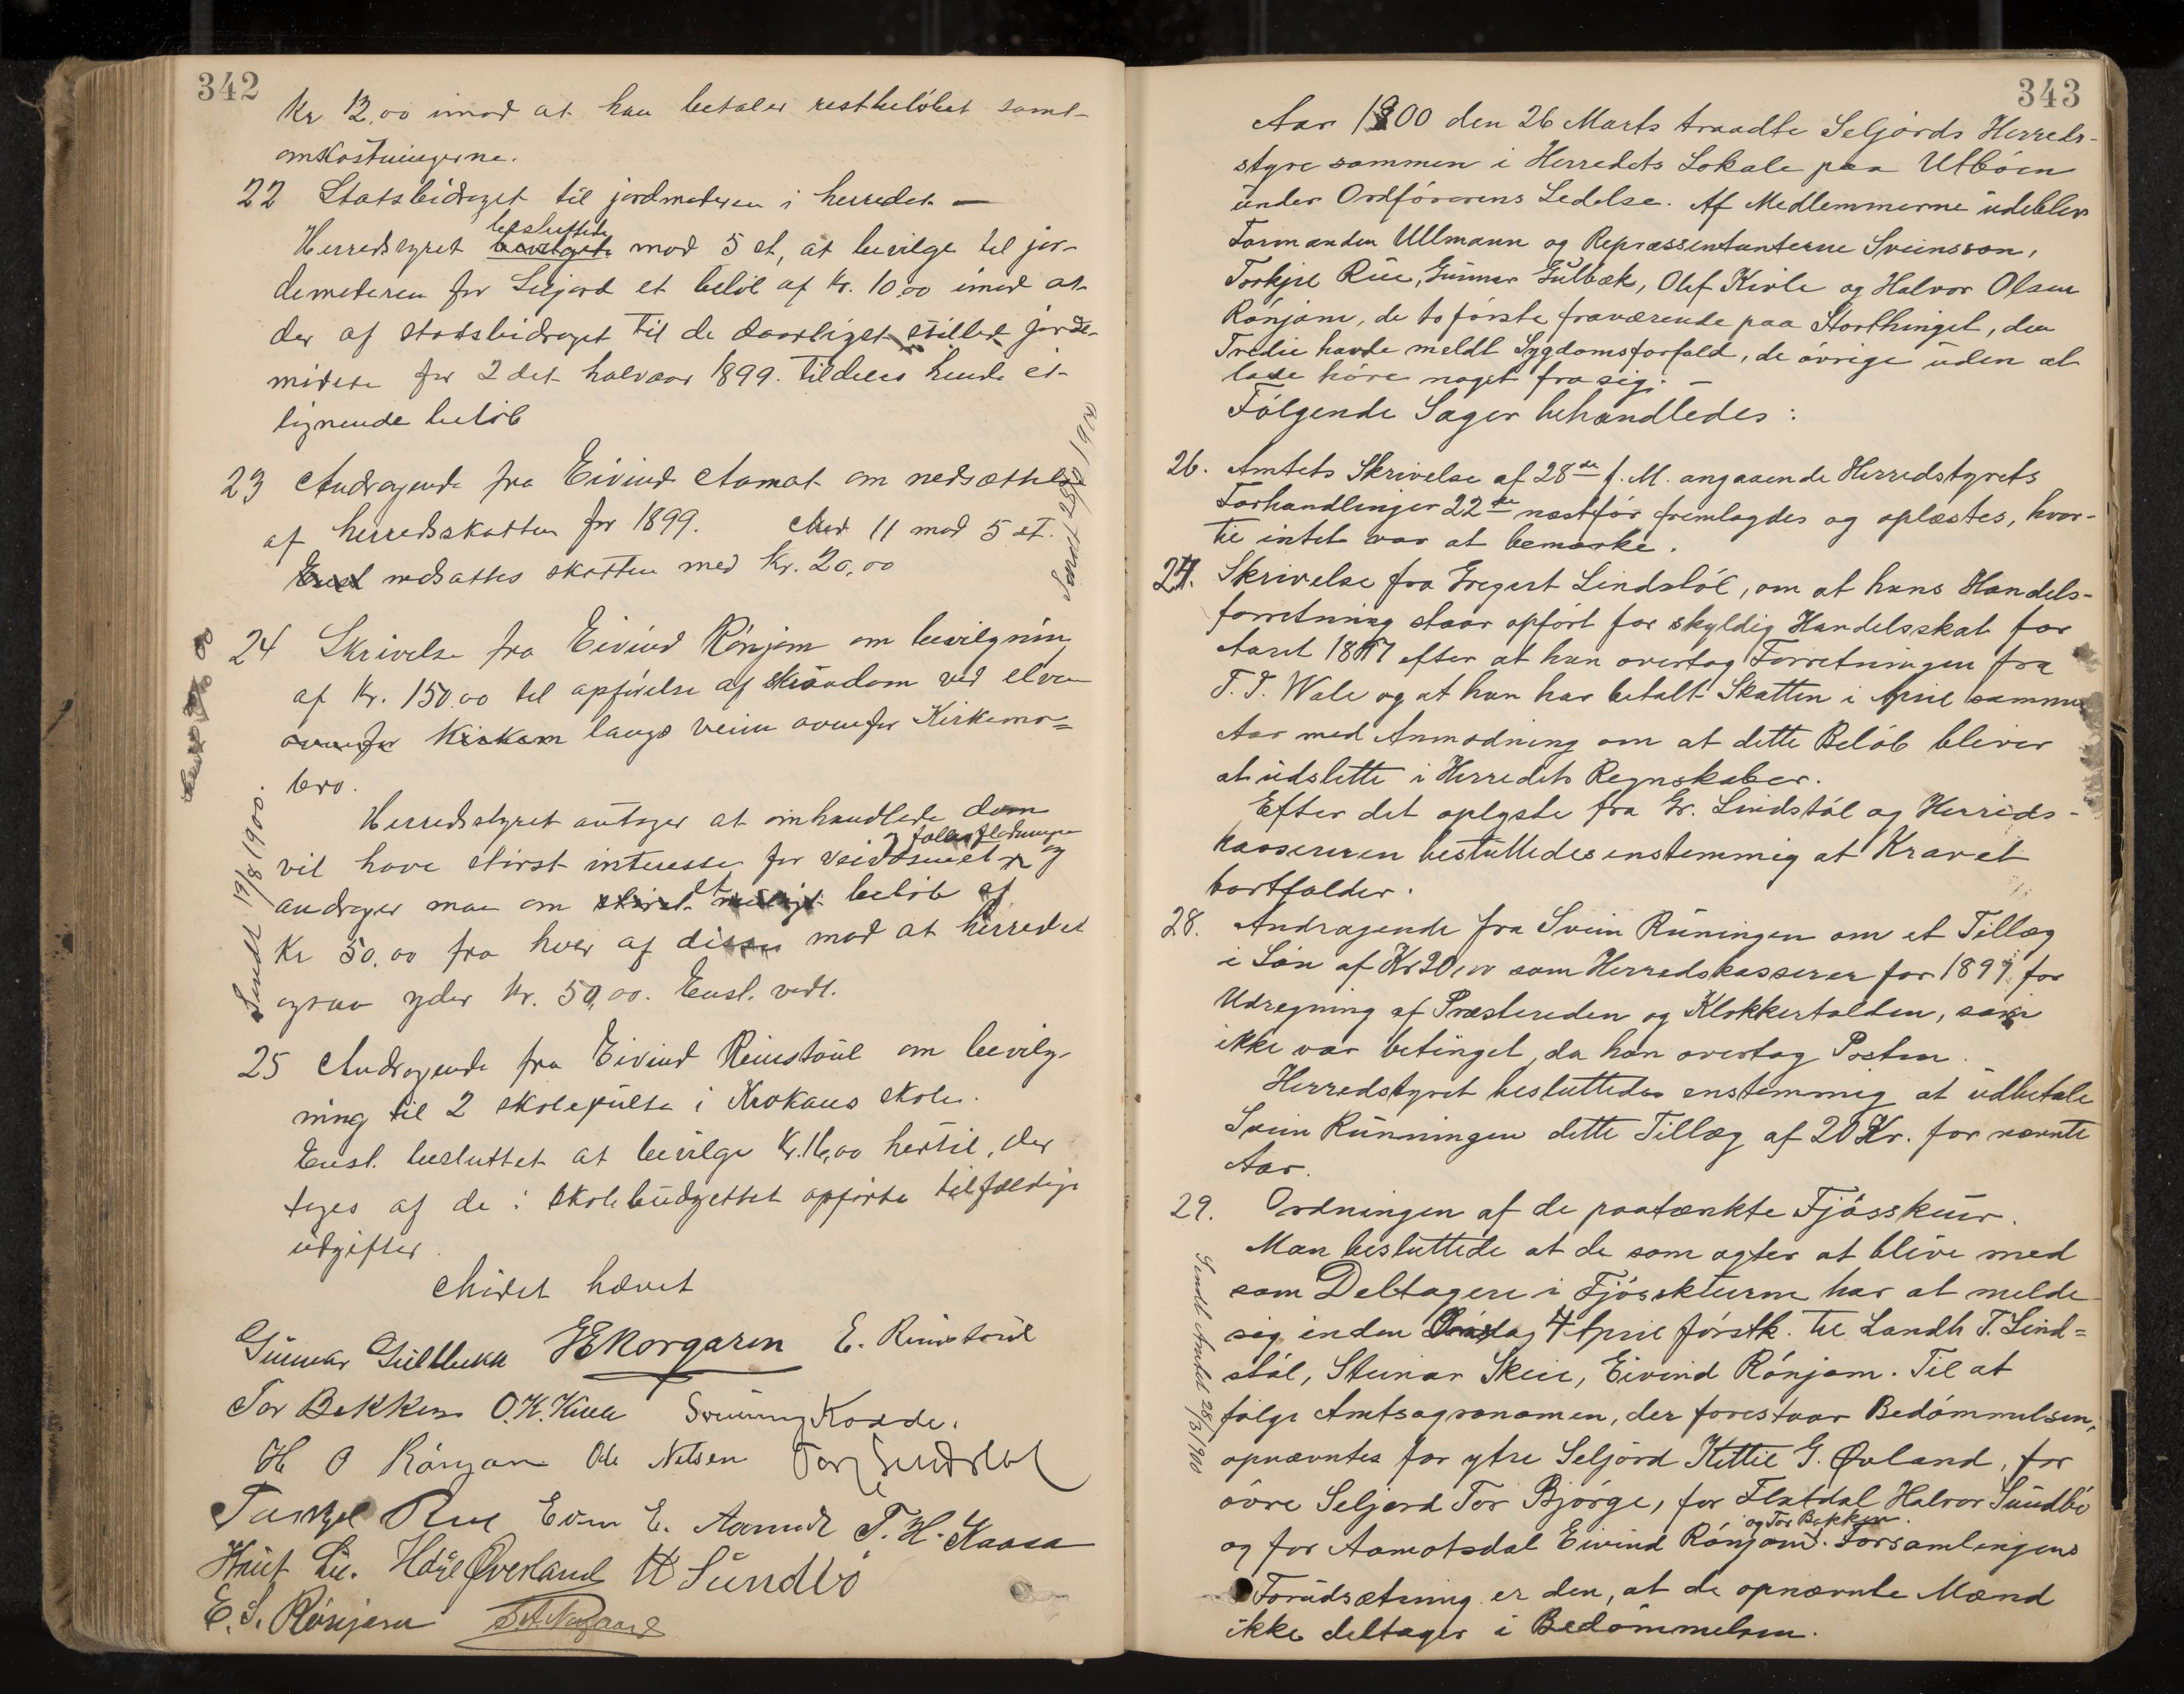 342
Kr 12.00 imod at han betaler restbeløbet samt
omkostningerne.
22 Statsbidraget til jordmoderen i herredet —
besluttede
Herredstyret mod 5 st, at bevilge til jor-
demoderen for Seljord et beløb af Kr. 10,00 imod at
der af statsbidraget til de daarligst stillede jorde-
mødre for 2det halvaar 1899 tildeles hende et
lignende beløb
23 Andragende fra Eivind Aamot om nedsættelse
af herredsskatten for 1899. Med 11 mod 5 st.
nedsattes skatten med Kr. 20,00
24 Skrivelse fra Eivind Rónjom om bevilgning
af Kr. 150.00 til opførelse af skiøndom ved elven
ovenfor Kirken langs veien ovenfor Kirkemo-
bro.
Herredsstyret antager at omhandlede dom
vil have størst interesse for og
andrager man om et beløb af
Kr 50.00 fra hver af disse mod at herredet
ogsaa yder Kr. 50,00. Enst. vedt.
Sendt 19/8 1900.
25 Andragende fra Eivind Reinstoul om bevilg-
ning til 2 skolepulte i Krokaas skole.
Enst. besluttet at bevilge Kr. 16,00 hertil, der
tages af de i skolebudgettet opførte tilfældige
udgifter.
Mødet hævet
Gunnar Gullbekk Korgaren E. Reinstoul
Tor Bakken O.K. Kivle Sveinung Kaasde.
H O Rónjom Ole Nilsen
Torkjel Rue Even E. Aamodt T. H. Kaasa
Knut Lie. Øverland H Sundbö
E. S. Rónjom
343
Aar 1900 den 26 Marts traadte Seljords Herreds-
styre sammen i Herredets Lokale paa Utbøen
under Ordførerens Ledelse. Af Medlemmerne udeblev
Formanden Ullmann og Repræssentanterne Sveinsson,
Torkjil Rue, Gunnar Gulbæk, Olef Kivle og Halvor Olsen
Rónjom, de to første fraværende paa Storthinget, den
Tredie havde meldt Sygdomsforfald, de øvrige uden at
lade høre noget fra sig. —
Følgende Sager behandledes:
26. Amtets Skrivelse af 28de f. M. angaaende Herredstyrets
Forhandlinger 22de næstfør fremlagdes og oplæstes, hvor-
til intet var at bemærke.
27. Skrivelse fra Gregert Lindstøl, om at hans Handels-
forretning staar opført for skyldig Handelsskat for
Aaret 1897 efter at han overtog Forretningen fra
T. T. Wale og at han har betalt Skatten i April samme
Aar med Anmodning om at dette Beløb bliver
at udslette i Herredets Regnskaber.
Efter det oplyste fra Gr. Lindstøl og Herreds-
kassereren besluttedes enstemmig at Kravet
bortfalder.
28. Andragende fra Svein Runingen om et Tillæg
i Løn af Kr 20,00 som Herredskasserer for 1897 for
Udregning af Præstereden og Klokkertolden, som
ikke var betinget, da han overtog Posten.
Herredstyret besluttedes enstemmig at udbetale
Svein Runningen dette Tillæg af 20 Kr. for nævnte
Aar.
29. Ordningen af de paatænkte Fjøsskuer.
Man besluttede at de som agter at blive med
som Deltagere i Fjøsskuerne har at melde
sig inden Onsdag 4 April førstk. til Landh T. Lind-
støl, Steinar Skeie, Eivind Rónjom. Til at
følge Amtsagronomen, der forestaar Bedømmelsen,
opnævntes for ytre Seljord Kittil G. Øvland, for
øvre Seljord Tor Bjørge, for Flatdal Halvor Sundbø
og Tor Bakken.
og for Aamotsdal Eivind Rónjom. Forsamlingens
Forudsætning er den, at de opnævnte Mænd
ikke deltager i Bedømmelsen.
Sendt Amtet 28/3 1900